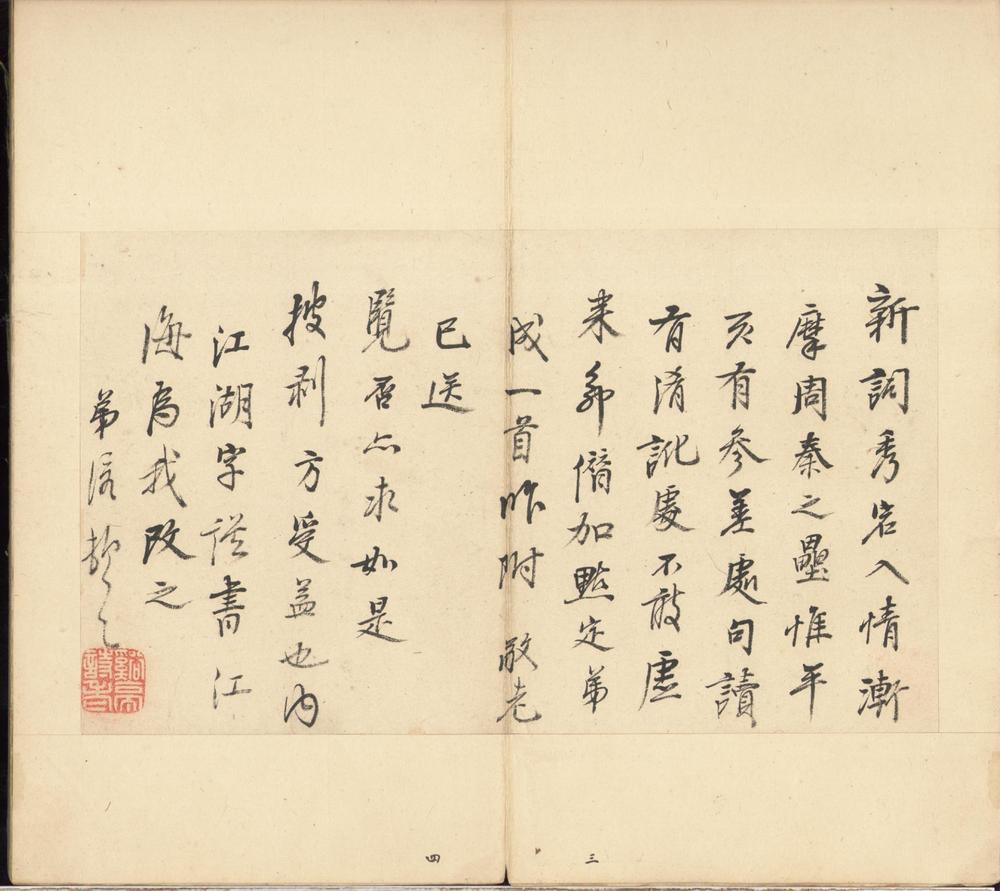 新詞秀宕入情漸
摩周秦之壘惟平
仄有參差處句讀
有淆訛處不敢虛
来命僭加點定弟
成一首昨附 敬老
已送
覽否亦求如是
搜剥方受益也内
江湖字誤書江
海為我改之
弟 頓首
三
四